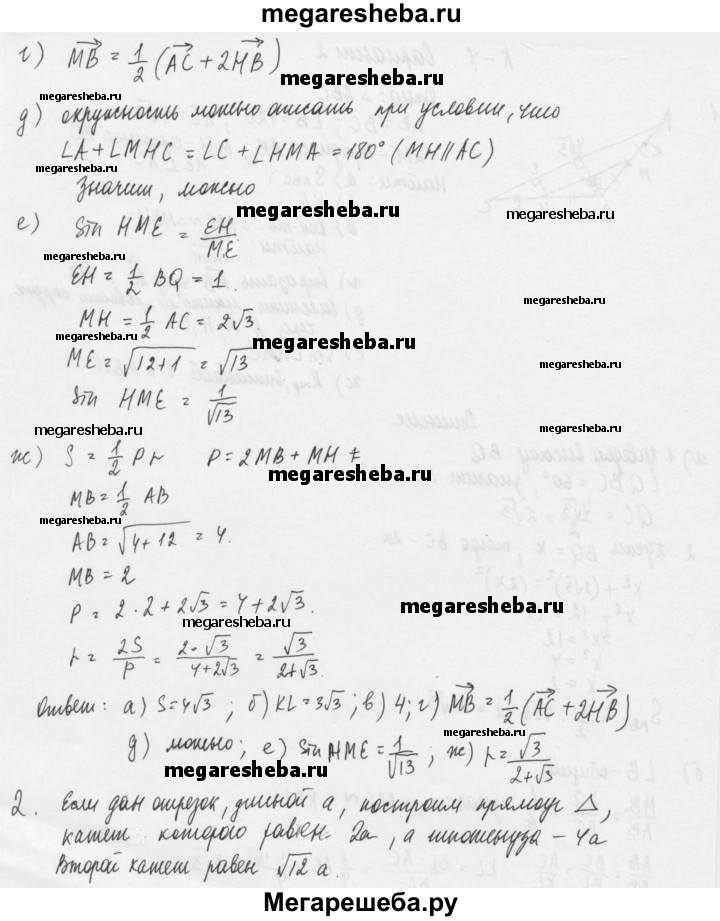 megaresheba.ru
г) MB = 1/2 (AC + 2HB)
megaresheba.ru
megaresheba.ru
д) окружность можно описать при условии, что
megaresheba.ru
∠A + ∠MHC = ∠C + ∠HMA = 180° (MH || AC)
megaresheba.ru
Значит, можно
megaresheba.ru
megaresheba.ru
е) Sin HME = EH/ME
EH = 1/2 BQ = 1.
megaresheba.ru
MH = 1/2 AC = 2√3.
megaresheba.ru
megaresheba.ru
ME = √12+1 = √13
megaresheba.ru
Sin HME = 1/√13
megaresheba.ru
megaresheba.ru
ж) S = 1/2 P r P = 2MB + MH =
megaresheba.ru
MB = 1/2 AB
megaresheba.ru
AB = √4+12 = 4.
megaresheba.ru
MB = 2
megaresheba.ru
P = 2·2 + 2√3 = 4 + 2√3.
megaresheba.ru
r = 2S/P = 2·√3/4+2√3 = √3/2+√3.
megaresheba.ru
Ответ: а) S = 4√3 ; б) KL = 3√3 ; в) 4; г) MB = 1/2 (AC + 2HB)
megaresheba.ru
megaresheba.ru
д) можно; е) Sin HME = 1/√13 ; ж) r = √3/2+√3
megaresheba.ru
2. Если дан отрезок, длиной a, построим прямоуг Δ,
катет которого равен 2a, а гипотенуза – 4a
Второй катет равен √12 a.
Мегарешеба.ру